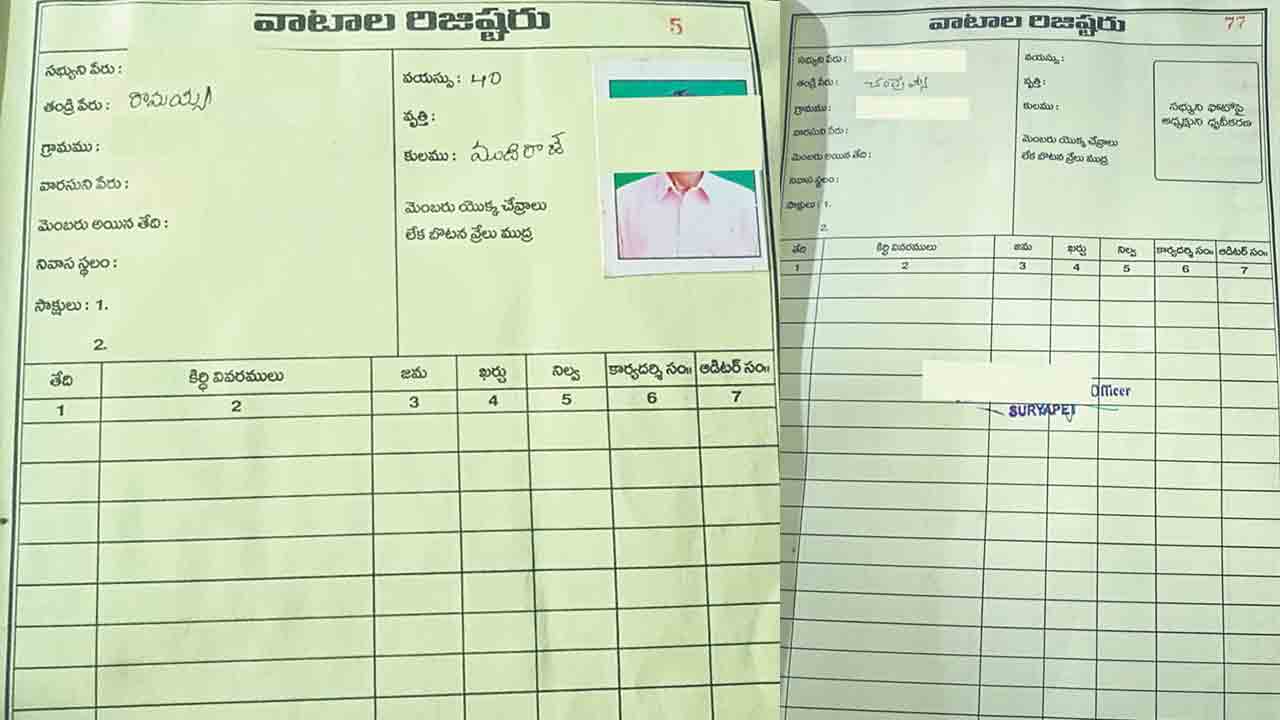 వాటాల రిజిష్టరు
5
సభ్యుని పేరు :
తండ్రి పేరు : రామయ్య
గ్రామము :
వారసుని పేరు :
మెంబరు అయిన తేది :
నివాస స్థలం :
సాక్షులు : 1.
2.
వయస్సు : 40
వృత్తి :
కులము :
మెంబరు యొక్క చేవ్రాలు
లేక బొటన వ్రేలు ముద్ర
తేది కిర్ధి వివరములు జమ ఖర్చు నిల్వ కార్యదర్శి సం॥ ఆడిటర్ సం॥
1 2 3 4 5 6 7
వాటాల రిజిష్టరు
77
సభ్యుని పేరు :
తండ్రి పేరు :
గ్రామము :
వారసుని పేరు :
మెంబరు అయిన తేది :
నివాస స్థలం :
సాక్షులు : 1.
2.
వయస్సు :
వృత్తి :
కులము :
మెంబరు యొక్క చేవ్రాలు
లేక బొటన వ్రేలు ముద్ర
సభ్యుని ఫొటోపై
అధ్యక్షుని ధృవీకరణ
తేది కిర్ధి వివరములు జమ ఖర్చు నిల్వ కార్యదర్శి సం॥ ఆడిటర్ సం॥
1 2 3 4 5 6 7
Officer
SURYAPET